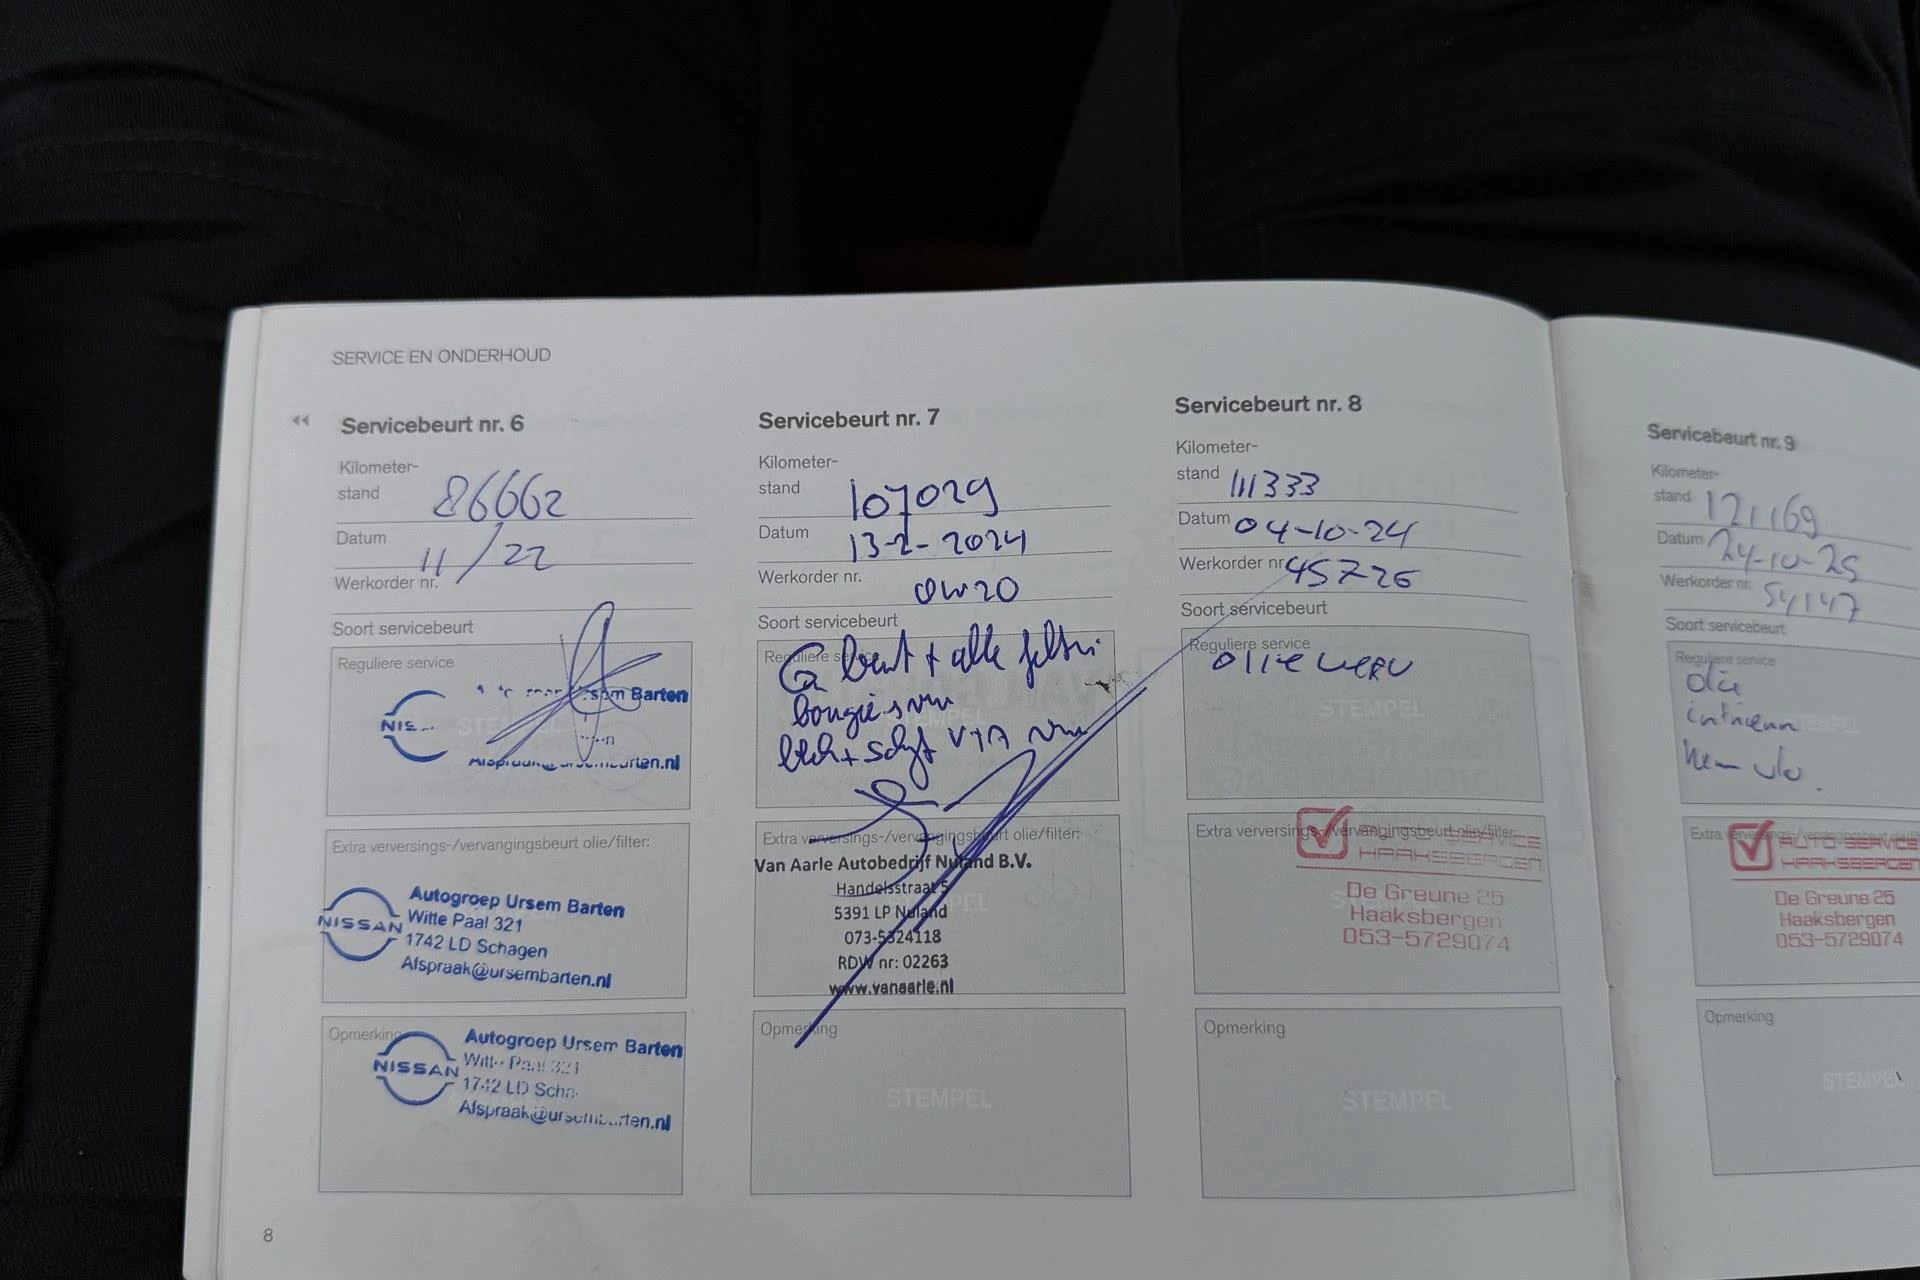 SERVICE EN ONDERHOUD
Servicebeurt nr. 6
Kilometer-
stand 86662
Datum 11/22
Werkorder nr.
Soort servicebeurt
Reguliere service
Barten
NIS
STEMPEL
Extra verversings-/vervangingsbeurt olie/filter:
Autogroep Ursem Barten
NISSAN
Witte Paal 321
1742 LD Schagen
Afspraak@ursembarten.nl
Opmerking
Autogroep Ursem Barten
NISSAN
Witte Paal 321
1742 LD Scha
Afspraak@ursembarten.nl
8
Servicebeurt nr. 7
Kilometer-
stand 107029
Datum 13-2-2024
Werkorder nr.
0W20
Soort servicebeurt
Reguliere service
beurt + alle filters
bougies
STEMPEL
Extra verversings-/vervangingsbeurt olie/filter:
Van Aarle Autobedrijf Nuland B.V.
Handelsstraat 5
5391 LP Nuland
073-5324118
RDW nr: 02263
www.vanaarle.nl
Opmerking
STEMPEL
Servicebeurt nr. 8
Kilometer-
stand 111333
Datum 04-10-24
Werkorder nr. 45726
Soort servicebeurt
Reguliere service
olie
STEMPEL
Extra verversings-/vervangingsbeurt olie/filter:
AUTO-SERVICE
HAAKSBERGEN
De Greune 25
Haaksbergen
053-5729074
Opmerking
STEMPEL
Servicebeurt nr. 9
Kilometer-
stand 121169
Datum 24-10-25
Werkorder nr. 54147
Soort servicebeurt
Reguliere service
olie
STEMPEL
Extra verversings-/vervangingsbeurt
AUTO-SERVICE
HAAKSBERGEN
De Greune 25
Haaksbergen
053-5729074
Opmerking
STEMPEL